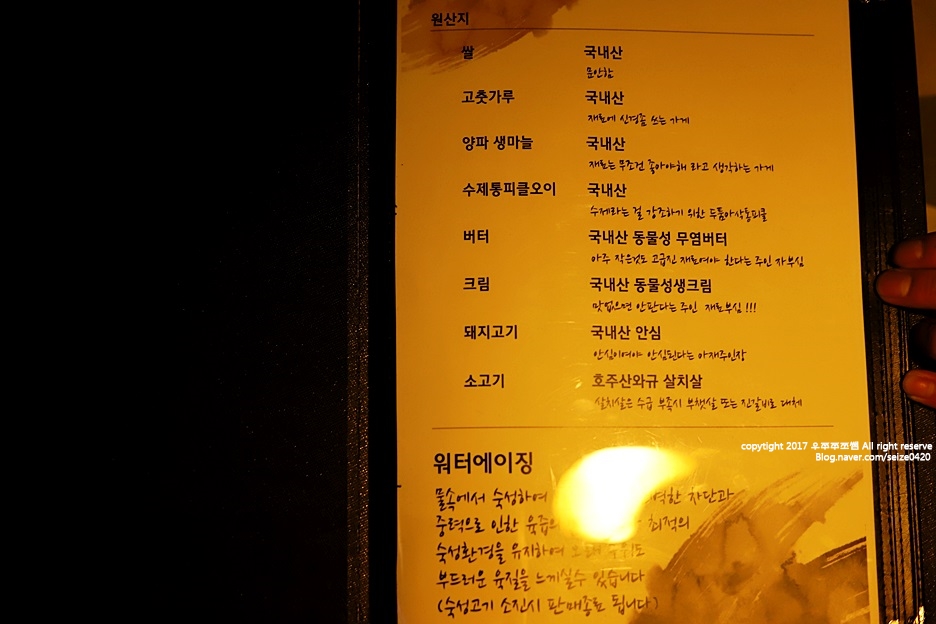 원산지
쌀 국내산
묻안함
고춧가루 국내산
재료에 신경좀 쓰는 가게
양파 생마늘 국내산
재료는 무조건 좋아야해 라고 생각하는 가게
수제통피클오이 국내산
수제라는 걸 강조하기 위한 두툼아삭통피클
버터 국내산 동물성 무염버터
아주 작은것도 고급진 재료여야 한다는 주인 자부심
크림 국내산 동물성생크림
맛없으면 안판다는 주인 재료부심 !!!
돼지고기 국내산 안심
안심이여야 안심된다는 아재주인장
소고기 호주산와규 살치살
살치살은 수급 부족시 부챗살 또는 진갈비로 대체
워터에이징
물속에서 숙성하여 차단과
중력으로 인한 육즙의 최적의
숙성환경을 유지하여
부드러운 육질을 느끼실수 있습니다
(숙성고기 소진시 판매종료 됩니다)
copyright 2017 우쭈쭈쪼쨈 All right reserve
Blog.naver.com/seize0420